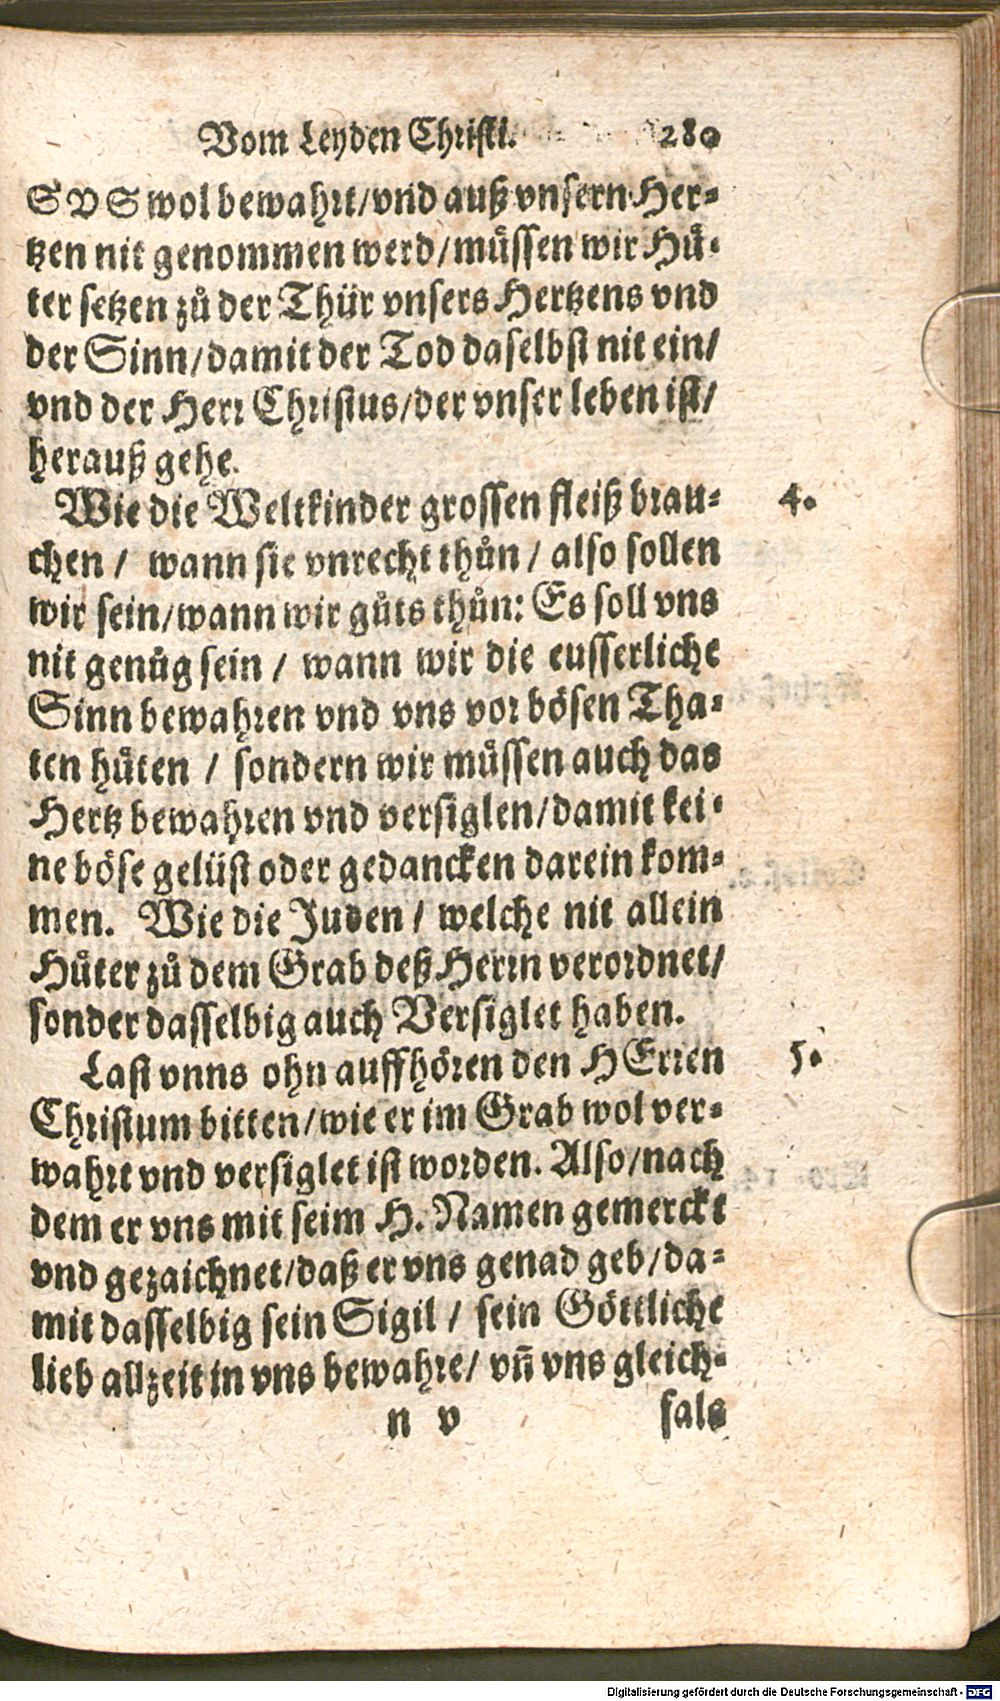 Vom Leyden Christi. 280
SVS wol bewahrt/vnd auß vnsern Her-
tzen nit genommen werd/müssen wir Hü-
ter setzen zů der Thür vnsers Hertzens vnd
der Sinn/damit der Tod daselbst nit ein/
vnd der Herr Christus/der vnser leben ist/
herauß gehe.
Wie die Weltkinder grossen fleiß brau- 4.
chen / wann sie vnrecht thůn / also sollen
wir sein/wann wir gůts thůn: Es soll vns
nit genůg sein / wann wir die eusserliche
Sinn bewahren vnd vns vor bösen Tha-
ten hüten / sondern wir müssen auch das
Hertz bewahren vnd versiglen/damit kei-
ne böse gelüst oder gedancken darein kom-
men. Wie die Juden / welche nit allein
Hüter zů dem Grab deß Herrn verordnet/
sonder dasselbig auch Versiglet haben.
Last vnns ohn auffhören den HErren 5.
Christum bitten/wie er im Grab wol ver-
wahrt vnd versiglet ist worden. Also/nach
dem er vns mit seim H. Namen gemerckt
vnd gezaichnet/daß er vns genad geb/da-
mit dasselbig sein Sigil / sein Göttliche
lieb allzeit in vns bewahre/ vñ vns gleich-
n v fals
Digitalisierung gefördert durch die Deutsche Forschungsgemeinschaft - DFG